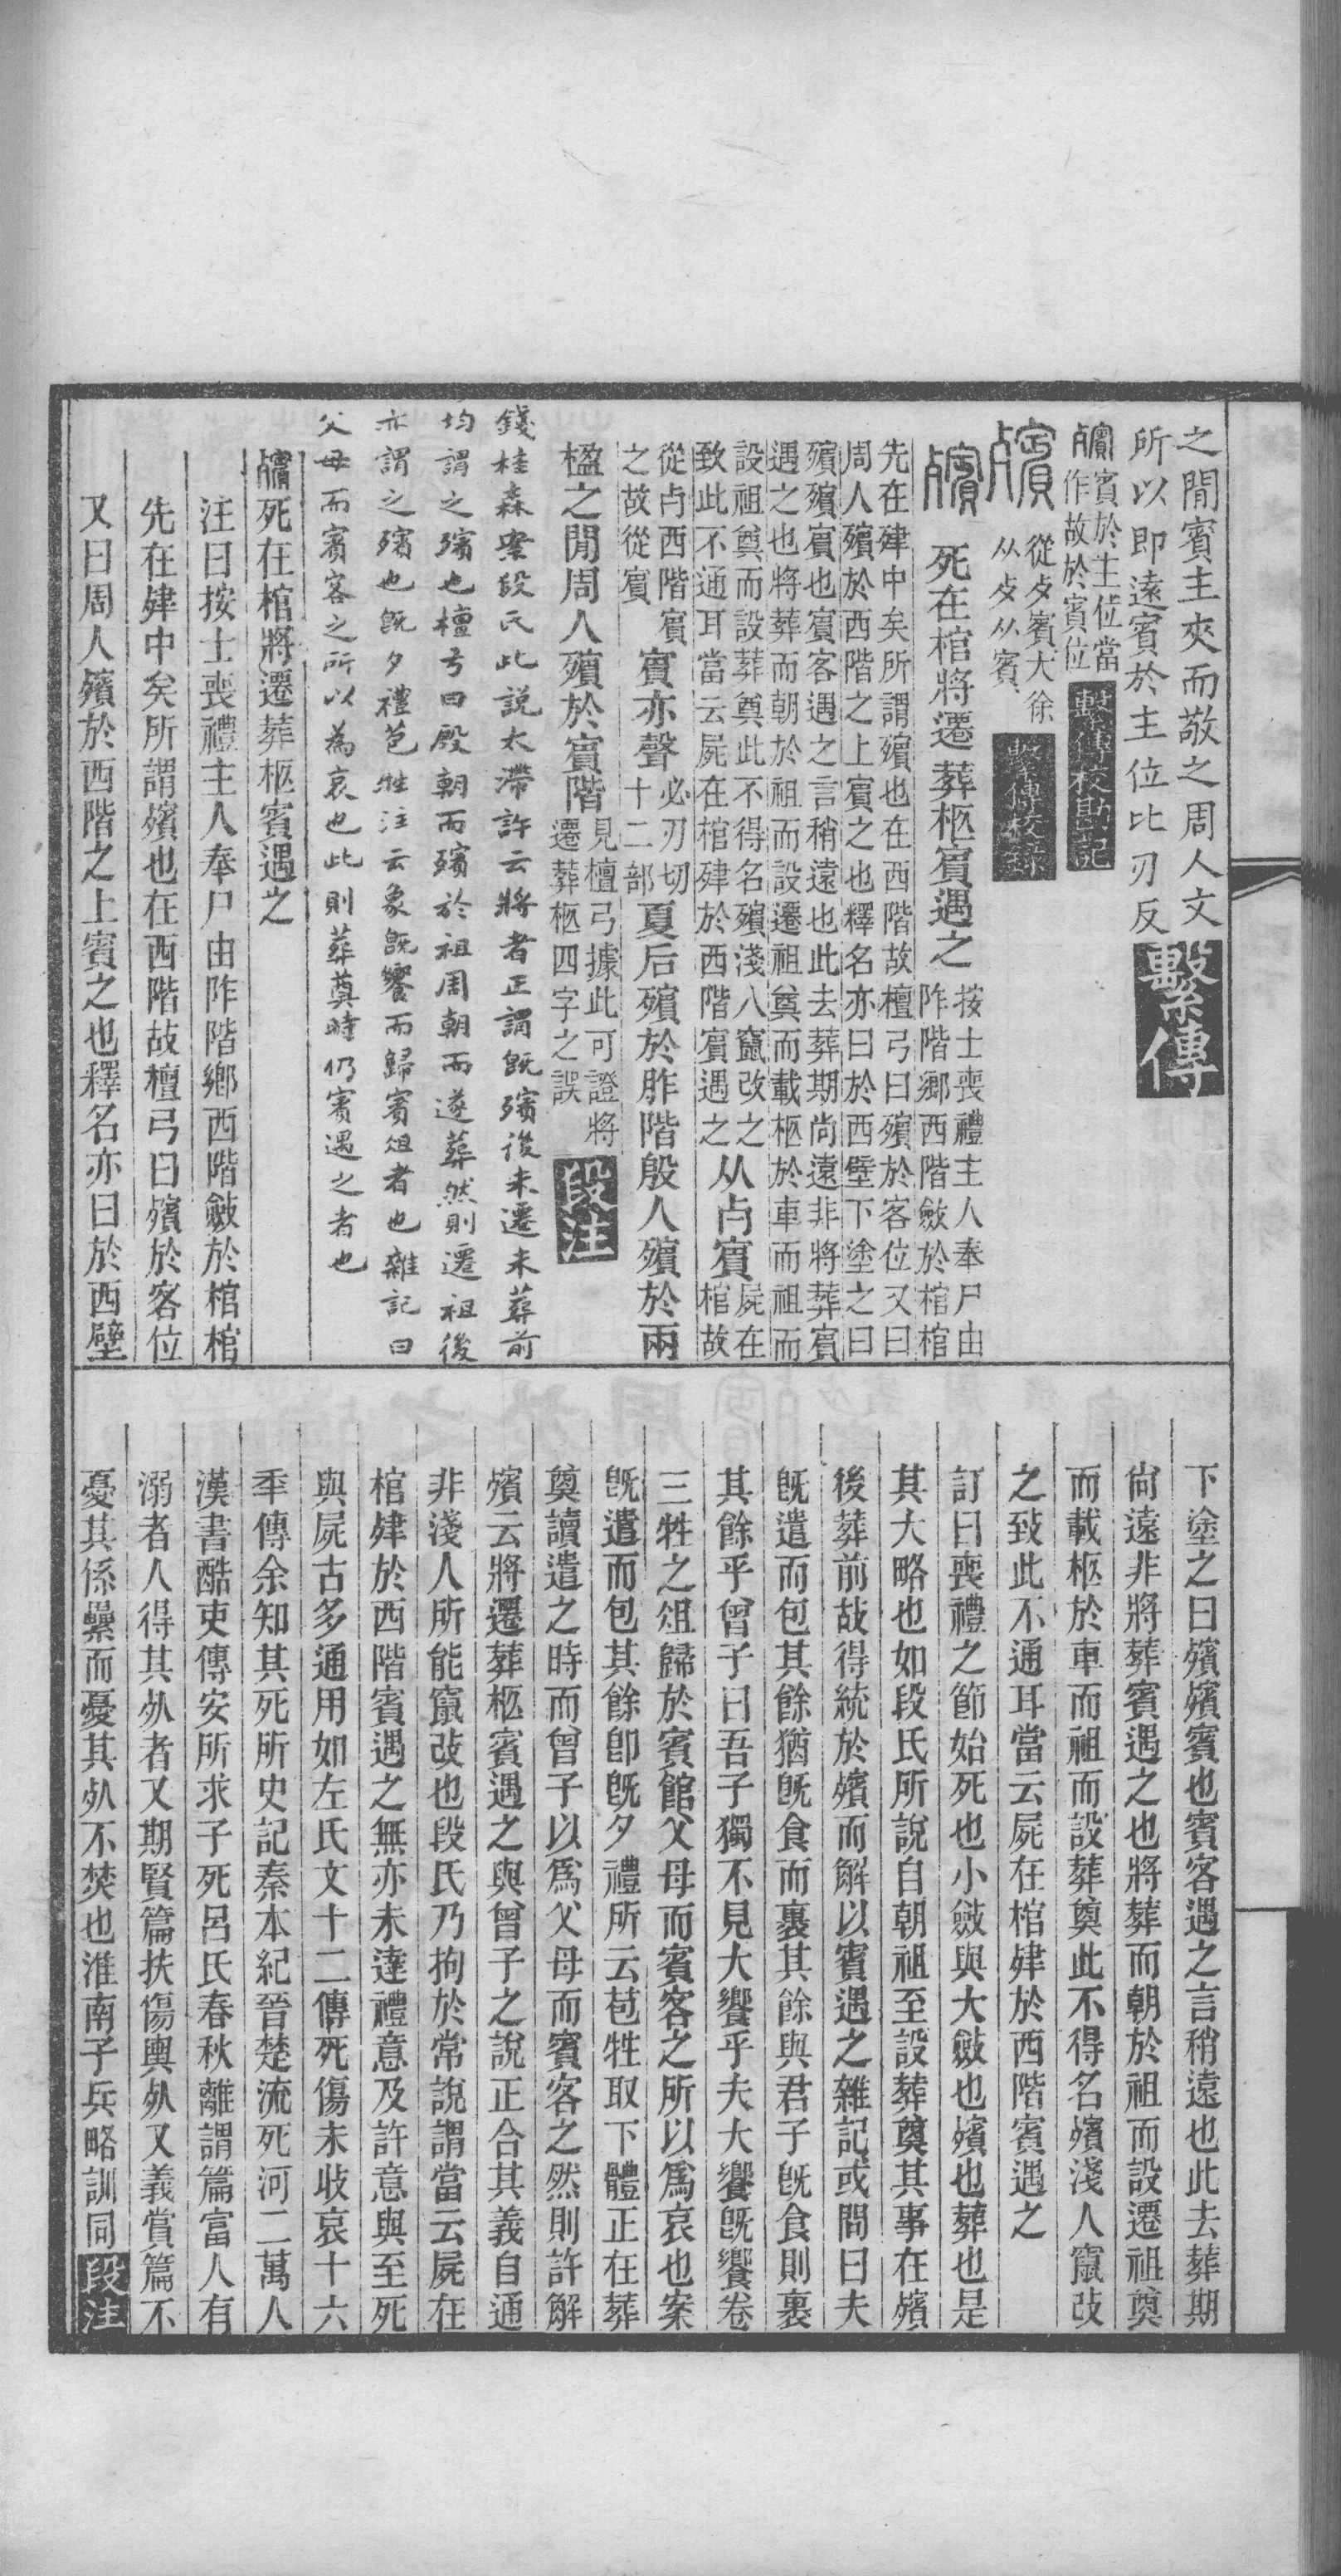 之閒賓主夾而敬之周人文
所以卽遠賓於主位比刃反繫傳
殯賓於主位當
作故於賓位繫傳校勘記
殯從歺賓大徐
从歺从賓繫傳校錄
殯死在棺將遷葬柩賓遇之按士喪禮主人奉尸由
阼階鄉西階斂於棺棺
先在肂中矣所謂殯也在西階故檀弓曰殯於客位又曰
周人殯於西階之上賓之也釋名亦曰於西壁下塗之曰
殯殯賓也賓客遇之言稍遠也此去葬期尚遠非將葬賓
遇之也將葬而朝於祖而設遷祖奠而載柩於車而祖而
設祖奠而設葬奠此不得名殯淺人竄改之
致此不通耳當云屍在棺肂於西階賓遇之从卢賓屍在
棺故
從卢西階賓
之故從賓賓亦聲必刃切
十二部夏后殯於阼階殷人殯於兩
楹之閒周人殯於賓階見檀弓據此可證將
遷葬柩四字之誤段注
錢桂森案段氏此說太滯許云將者正謂旣殯後未遷未葬前
均謂之殯也檀弓曰殷朝而殯於祖周朝而遂葬然則遷祖後
亦謂之殯也旣夕禮苞牲注云象旣饗而歸賓俎者也雜記曰
父母而賓客之所以為哀也此則葬奠時仍賓遇之者也
殯死在棺將遷葬柩賓遇之
注曰按士喪禮主人奉尸由阼階鄉西階斂於棺棺
先在肂中矣所謂殯也在西階故檀弓曰殯於客位
又曰周人殯於西階之上賓之也釋名亦曰於西壁
下塗之曰殯殯賓也賓客遇之言稍遠也此去葬期
尙遠非將葬賓遇之也將葬而朝於祖而設遷祖奠
而載柩於車而祖而設葬奠此不得名殯淺人竄改
之致此不通耳當云屍在棺肂於西階賓遇之
訂曰喪禮之節始死也小斂與大斂也殯也葬也是
其大略也如段氏所說自朝祖至設葬奠其事在殯
後葬前故得統於殯而解以賓遇之雜記或問曰夫
旣遣而包其餘猶旣食而裹其餘與君子旣食則裹
其餘乎曾子曰吾子獨不見大饗乎夫大饗旣饗卷
三牲之俎歸於賓館父母而賓客之所以爲哀也案
旣遣而包其餘卽旣夕禮所云苞牲取下體正在葬
奠讀遣之時而曾子以爲父母而賓客之然則許解
殯云將遷葬柩賓遇之與曾子之說正合其義自通
非淺人所能竄改也段氏乃拘於常說謂當云屍在
棺肂於西階賓遇之無亦未達禮意及許意與至死
與屍古多通用如左氏文十二傳死傷未收哀十六
年傳余知其死所史記秦本紀晉楚流死河二萬人
漢書酷吏傳安所求子死呂氏春秋離謂篇富人有
溺者人得其𣦸者又期賢篇扶傷輿𣦸又義賞篇不
憂其係纍而憂其𣦸不焚也淮南子兵略訓同段注